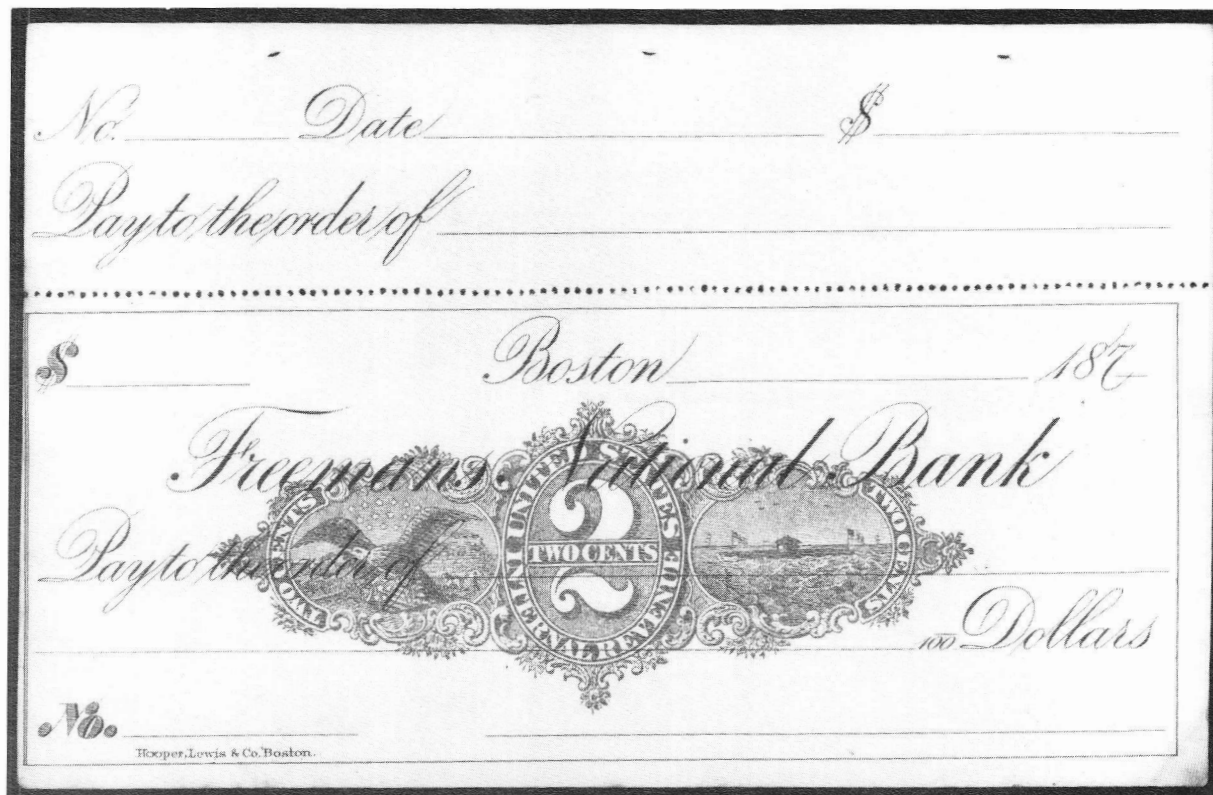 No. Date $
Pay to the order of
$ Boston 187
Freemans National Bank
TWO CENTS UNITED STATES INTERNAL REVENUE 2 TWO CENTS TWO CENTS
Pay to the order of
100 Dollars
No.
Hooper, Lewis & Co. Boston.